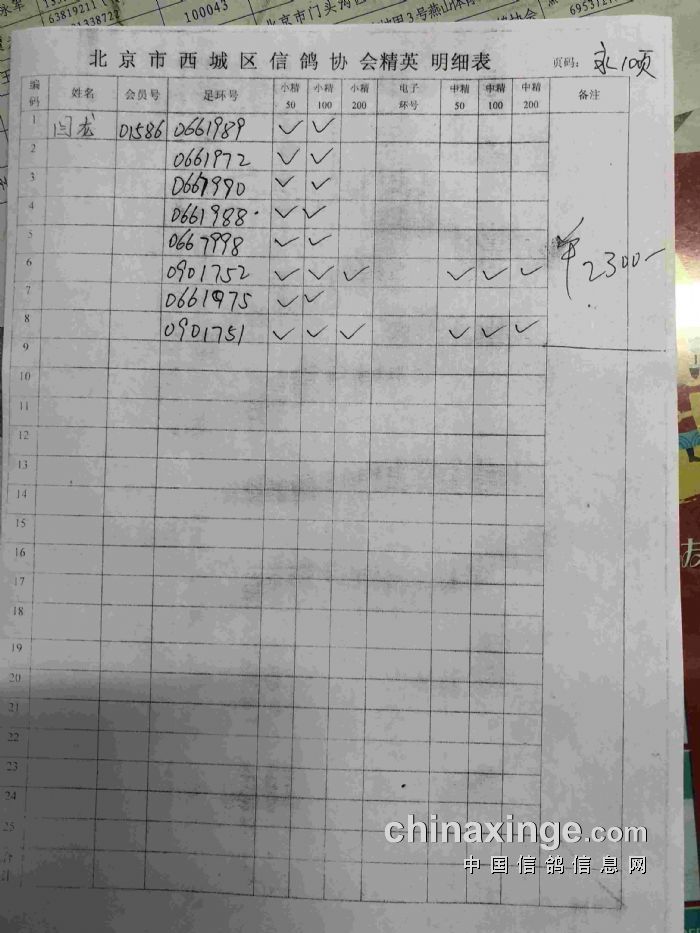 63819211
100043
北京市门头沟区
3号燕山
69531
13381387
北京市西城区信鸽协会精英 明细表
页码: 永10页
编码 姓名 会员号 足环号 小精50 小精100 小精200 电子环号 中精50 中精100 中精200 备注
1 闫龙 01586 0661989 ✓ ✓
2 0661972 ✓ ✓
3 0661990 ✓ ✓
4 0661988 ✓ ✓
5 0661998 ✓ ✓
6 0901752 ✓ ✓ ✓ ✓ ✓ ✓ ¥2300-
7 0661975 ✓ ✓
8 0901751 ✓ ✓ ✓ ✓ ✓ ✓
9
10
11
12
13
14
15
16
17
18
19
20
21
22
23
24
25
chinaxinge.com
中国信鸽信息网